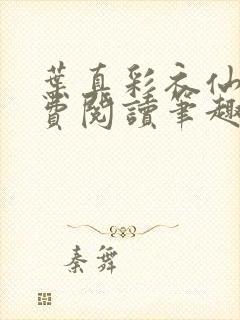 葉真彩衣仙
費閱讀筆趣
秦舞